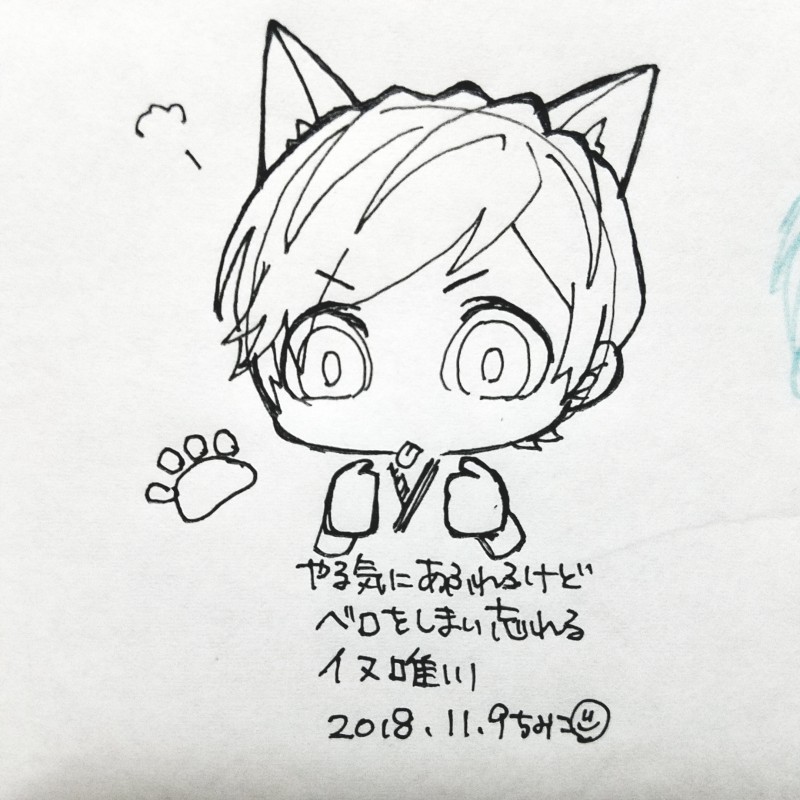 やる気にあふれるけど
ベロをしまい忘れる
イヌ唯川
2018.11.9ちみこ